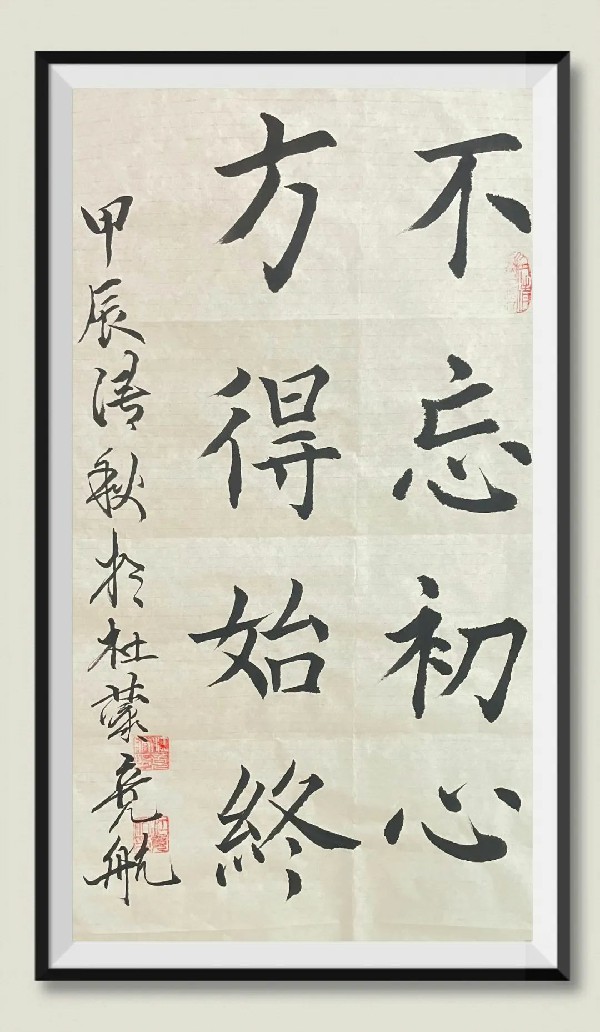 不忘初心
方得始終
甲辰清秋於杜蒙航